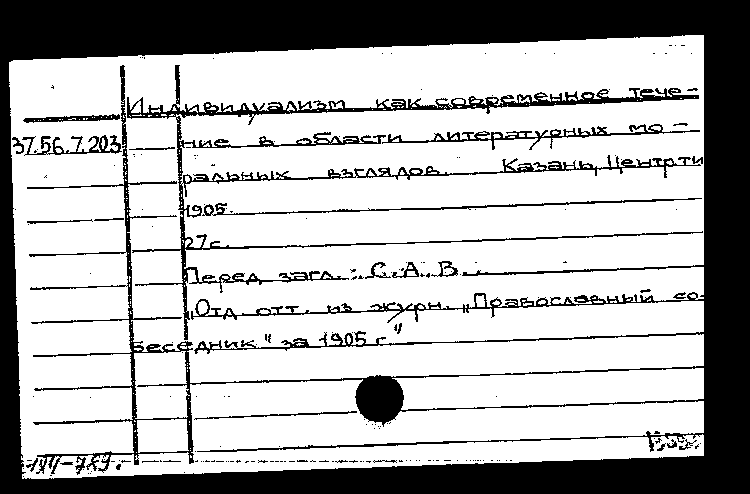 Индивидуализм как современное тече-
37.56.7.203 ние в области литературных мо-
ральных взглядов. Казань, Центр.ти
1905.
27 с.
Перед загл.: С.А.В..
„Отд. отт. из журн. „Православный со-
беседник" за 1905 г."